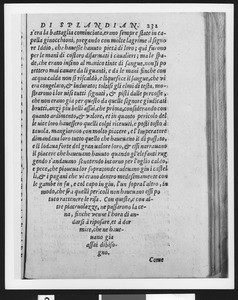 DI SPLANDIAN. 232
s'era la battaglia cominciata, erano sempre state in ca
pella ginocchioni, pregando con molte lagrime il signo
re Iddio, che hauesse hauuto pietà di loro; qua furono
per le mani di costoro disarmati i cauallieri; ma le
che, che erano insino al manico tinte di sangue, non si po
tettero mai cauare da li guanti, e da le mani finche con
acqua calda non si riscaldò, e liquefece il sangue, che ui
era congelato, & indurato; tolti essi gli elmi di testa, mo
strarono i lor uisi tutti segnati, & pisti dalle percosse,
che non erano gia per questo da quelle signore giudicati
brutti, anzi piu belli assai, che prima, considerando con
quanto ardimento, & ualore, et in quanto pericolo del
le uite loro hauessero quelli colpi riceuuti, e posti tosto a
tauola, mangiarono con molto piacere, e l'Imperatore
dimandaua loro tutto quello che haueuano il dì passato,
e li lodaua forte del gran ualore loro, & essi narrauano
il piacere che haueuano hauuto quando gli elefanti rug
gendo s'andauano scuotendo intorno per l'oglio caldo,
e pece, che pioueua lor sopra onde cadeuano giu i castel
li, & i pagani che ui erano dentro medesimamente con
le gambe in su, e col capo in giu, l'un sopra l'altro, in
modo, che fra quelli pericoli non haueuano essi po
tuto rattenere le risa. Con queste, e con al
tre piaceuolezze, ne passarono la ce
na, finche uenne l'hora di an-
darsi à riposare, et à dor
mire, che ne haue-
uano gia
assai di biso-
gno.
Come